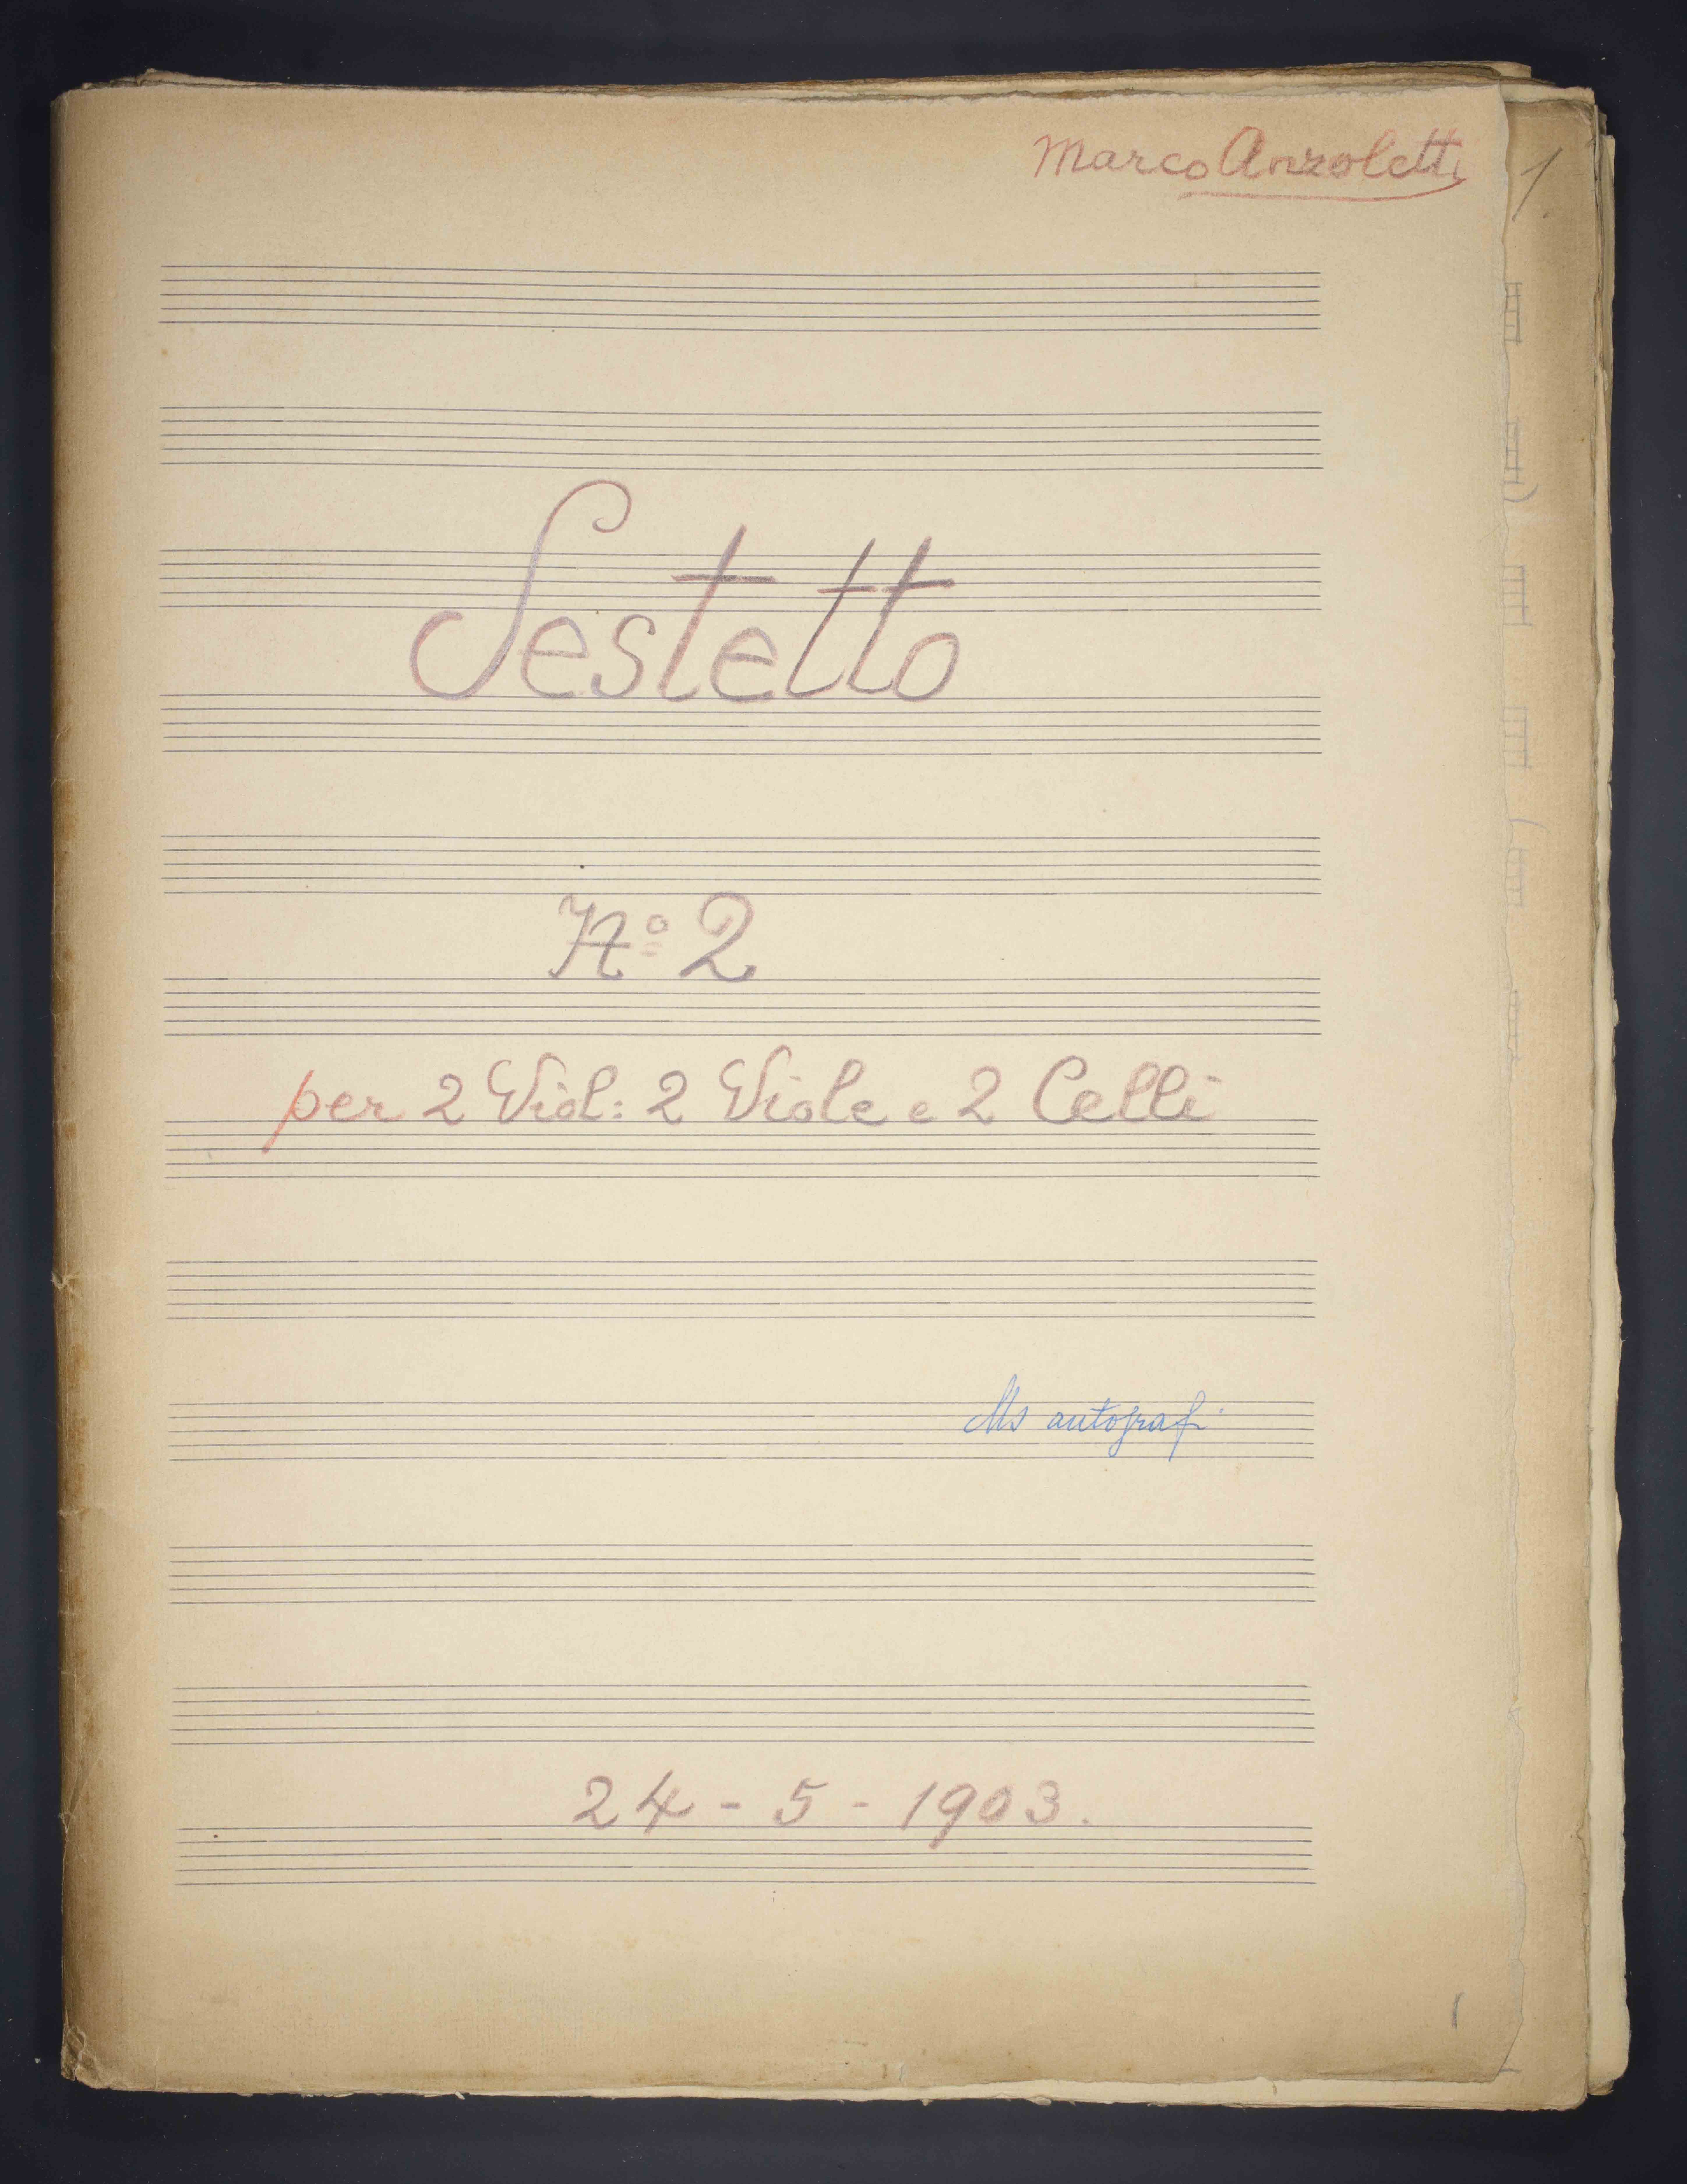 Marco Anzoletti
1
Sestetto
Nº 2
per 2 Viol: 2 Viole e 2 Celli
Ms autografi
24 - 5 - 1903.
1